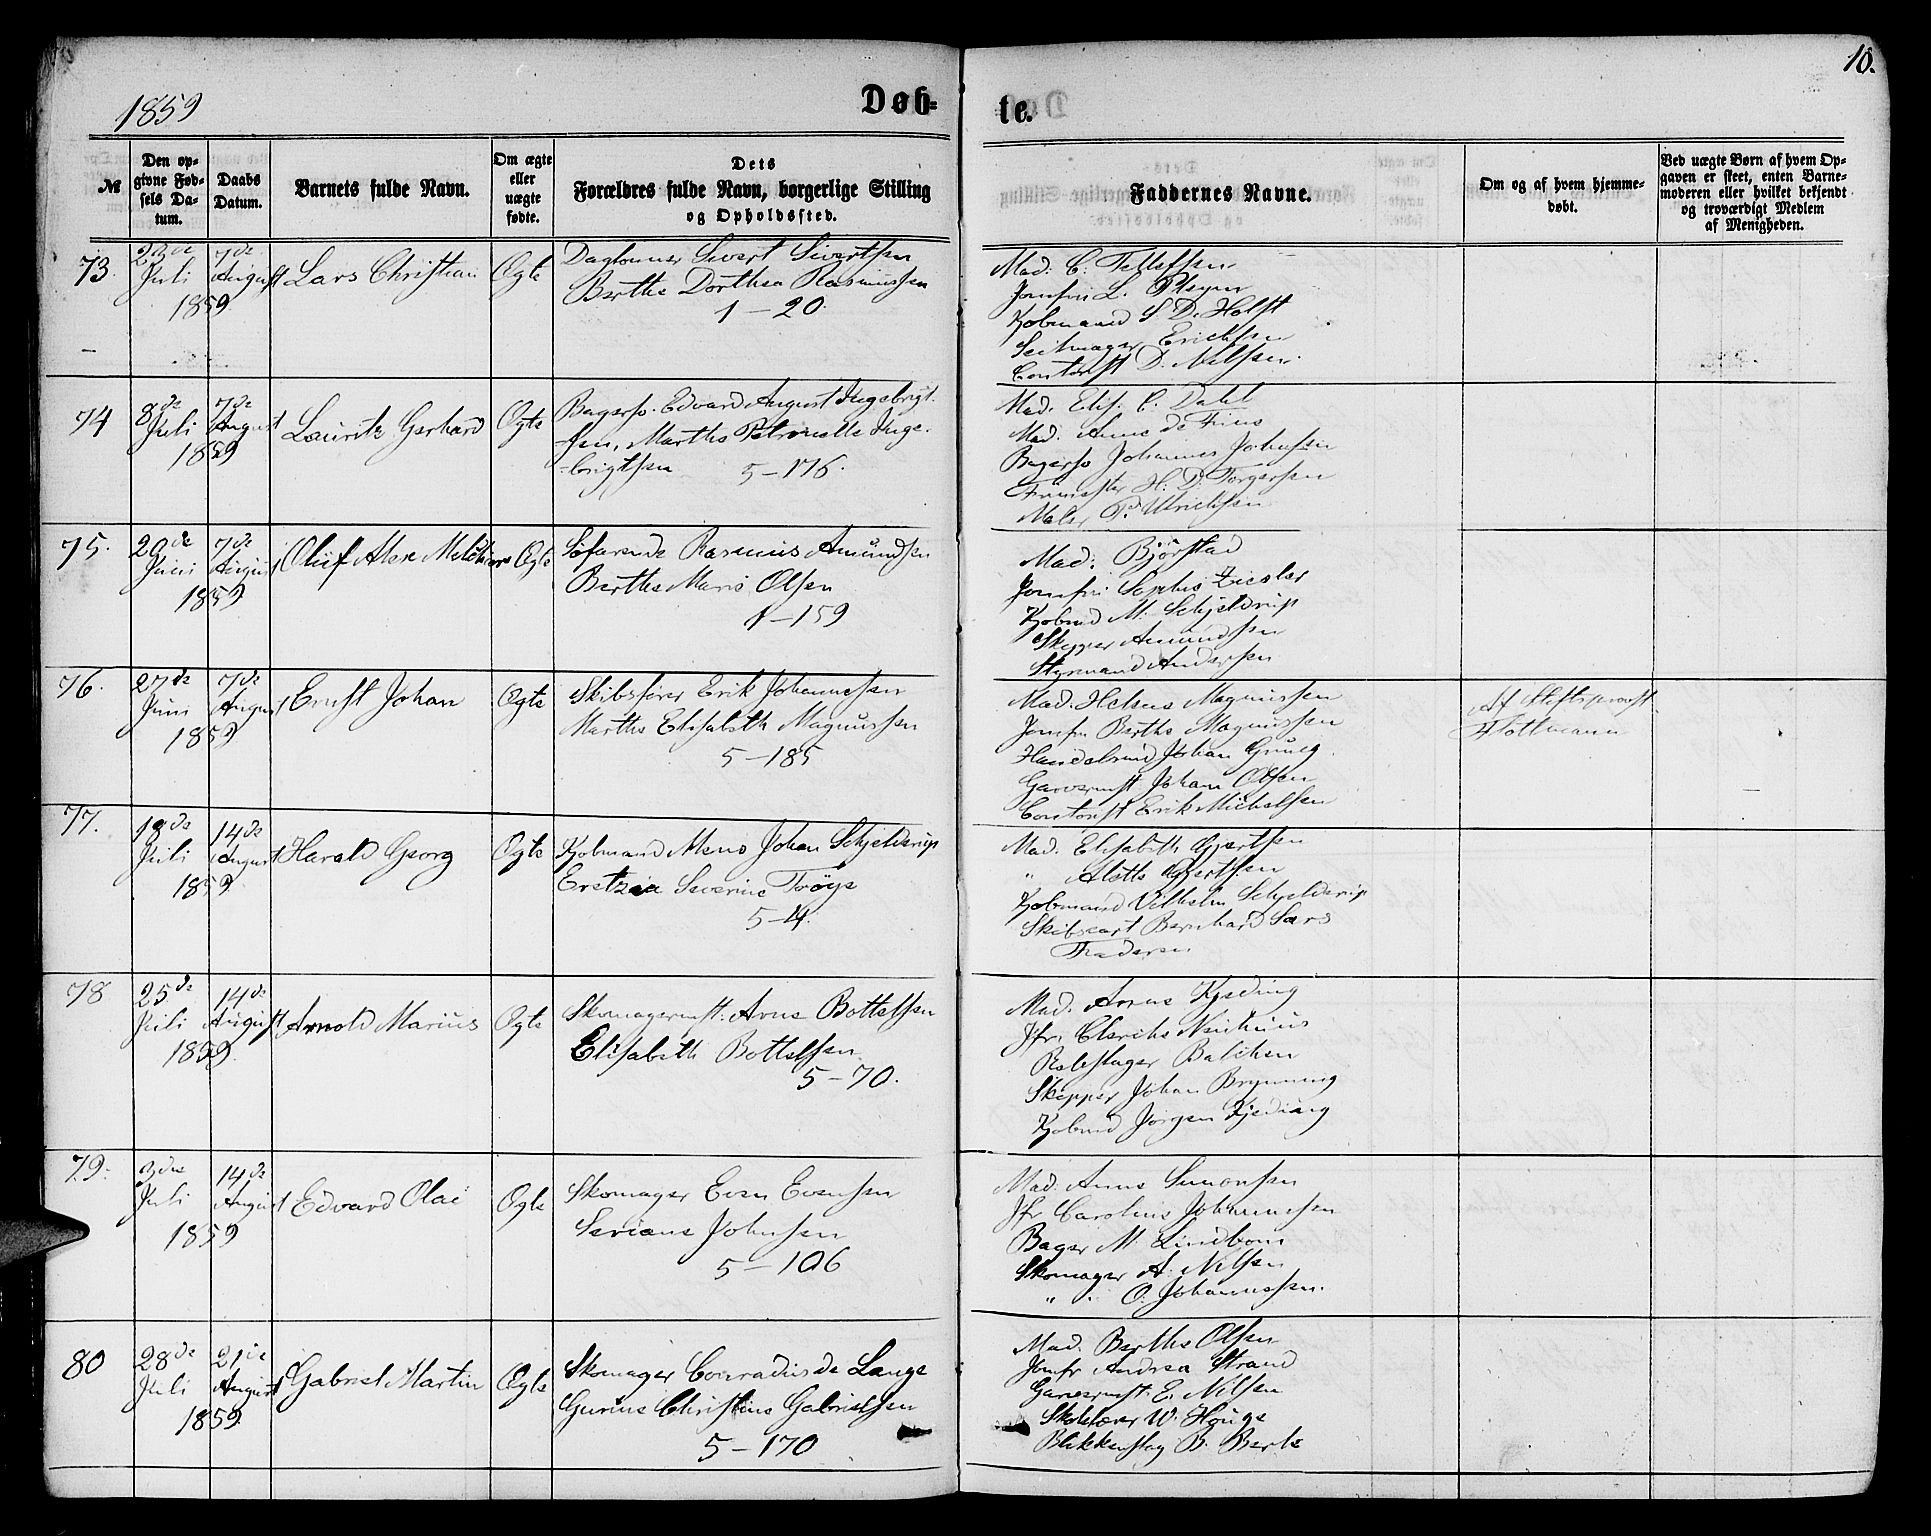 1859
Døb-
te.
10.
№
Den op-
givne Fød-
sels Da-
tum.
Daabs
Datum.
Barnets fulde Navn.
Om ægte
eller
uægte
fødte.
Dets
Forældres fulde Navn, borgerlige Stilling
og Opholdssted.
Faddernes Navne.
Om og af hvem hjemme-
døbt.
Ved uægte Børn af hvem Op-
gaven er skeet, enten Barne-
moderen eller hvilket bekjendt
og troværdigt Medlem
af Menigheden.
73.
23de
Juli
7de
August
1859
Lars Christian
Ægte
Daglønner Sivert Sivertsen
Berthe Dorthea Rasmussen
1 - 20.
Mad: C. Tellefsen
Jomfru L.
Kjøbmand S D. Holst
Ericksen
Contorist D. Nilsen.
74
8de
Juli
7de
August
1859
Lauritz Gerhard
Ægte
Bagersv. Edvard August Ingebrigt-
sen, Marthe Petronelle Inge-
brigtsen
5 - 176.
Mad. Elis. C. Dahl
Mad. Anne de Fine
Bagersv Johannes Johnsen
H. D. Torgersen
Maler P. Ulrichsen
75.
20de
Juni
7de
August
1859
Oluf Alex Melchior
Ægte
Søfarende Rasmus Amundsen
Berthe Marie Olsen
1 - 159
Mad: Bjørstad
Jomfru Sophie Ziesler
Kjøbmd M. Schjelderup
Skipper Amundsen
Styrmand Andersen
76.
27de
Juni
7de
August
1859
Ernst Johan
Ægte
Skibsfører Erik Johannesen
Marthe Elisabeth Magnussen
5 - 185
Mad. Helene Magnussen
Jomfru Berthe Magnussen
Handelsmd Johan Grung
Garvermst Johan Olsen
Contorist Erik Michelsen
Af Stiftsprovst
Flottmann
77.
18de
Juli
14de
August
1859
Harald Georg
Ægte
Kjøbmand Mens Johan Schjelderup
Severine Trøye
5 - 4.
Mad. Elisabeth Gjertsen
" Alette Gjertsen
Kjøbmand Vilhelm Schjelderup
Bernhard Sars
Faderen
78
25de
Juli
14de
August
1859
Arnold Marius
Ægte
Skomagermst: Arne Bottelsen
Elisabeth Bottelsen
5 - 70.
Mad. Anne Kjeding
Jfr.
Rebslager Balchen
Skipper Johan Brynning
Kjøbmd Jørgen Kjeding
79.
3die
Juli
14de
August
1859
Edvard Olai
Ægte
Skomager Even Evensen
Seriane Johnsen
5 - 106
Mad. Anne Simonsen
Jfr Caroline Johannesen
Bager M. Lindbom
Skomager A. Nilsen
" " O. Johannesen.
80
28de
Juli
21de
August
1859
Gabriel Martin
Ægte
Skomager Conradius de Lange
Gurine Christine Gabrielsen
5 - 170
Mad. Berthe Olsen
Jomfr Andrea Strand
Garvermst. E. Nilsen
Skolelærer W. Hauge
Blikkenslag B. Berle